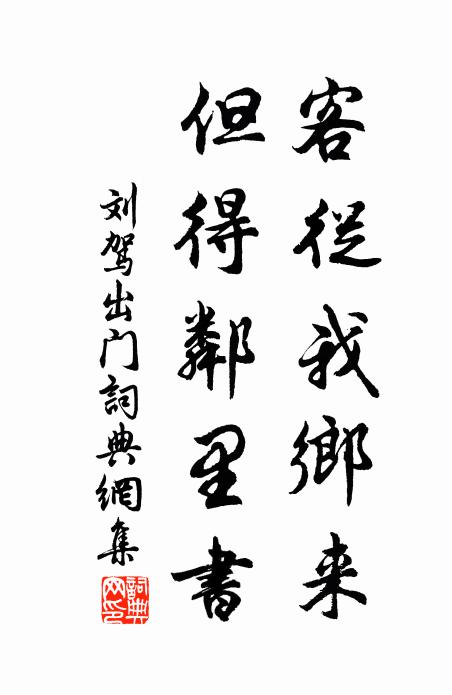 客從我鄉来
但得鄰里書
刘駕出门詞典網集
詞典网印